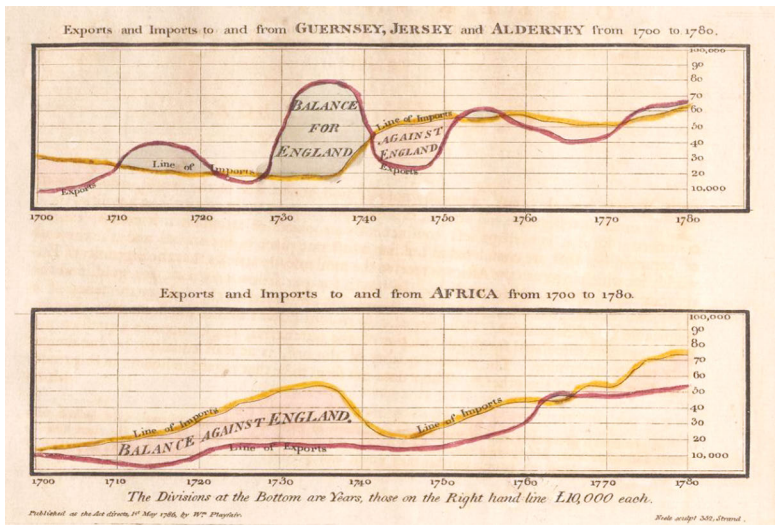 Exports and Imports to and from GUERNSEY, JERSEY and ALDERNEY from 1700 to 1780.
100,000
90
80
70
60
50
40
30
20
10,000
BALANCE
FOR
ENGLAND
Line of Imports
AGAINST
ENGLAND
Exports
Line of Imports
Exports
1700 1710 1720 1730 1740 1750 1760 1770 1780
Exports and Imports to and from AFRICA from 1700 to 1780.
100,000
90
80
70
60
50
40
30
20
10,000
Line of Imports
BALANCE AGAINST ENGLAND.
Line of Exports
Line of Imports
1700 1710 1720 1730 1740 1750 1760 1770 1780
The Divisions at the Bottom are Years, those on the Right hand line L10,000 each.
Published as the Act directs, 1st May 1786, by Wm Playfair.
sculpt 352, Strand.